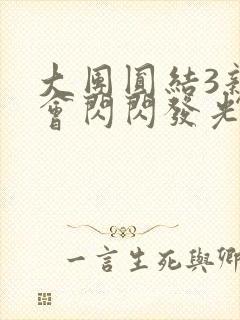 大團圓結3新
會閃閃發光
一言生死與卿